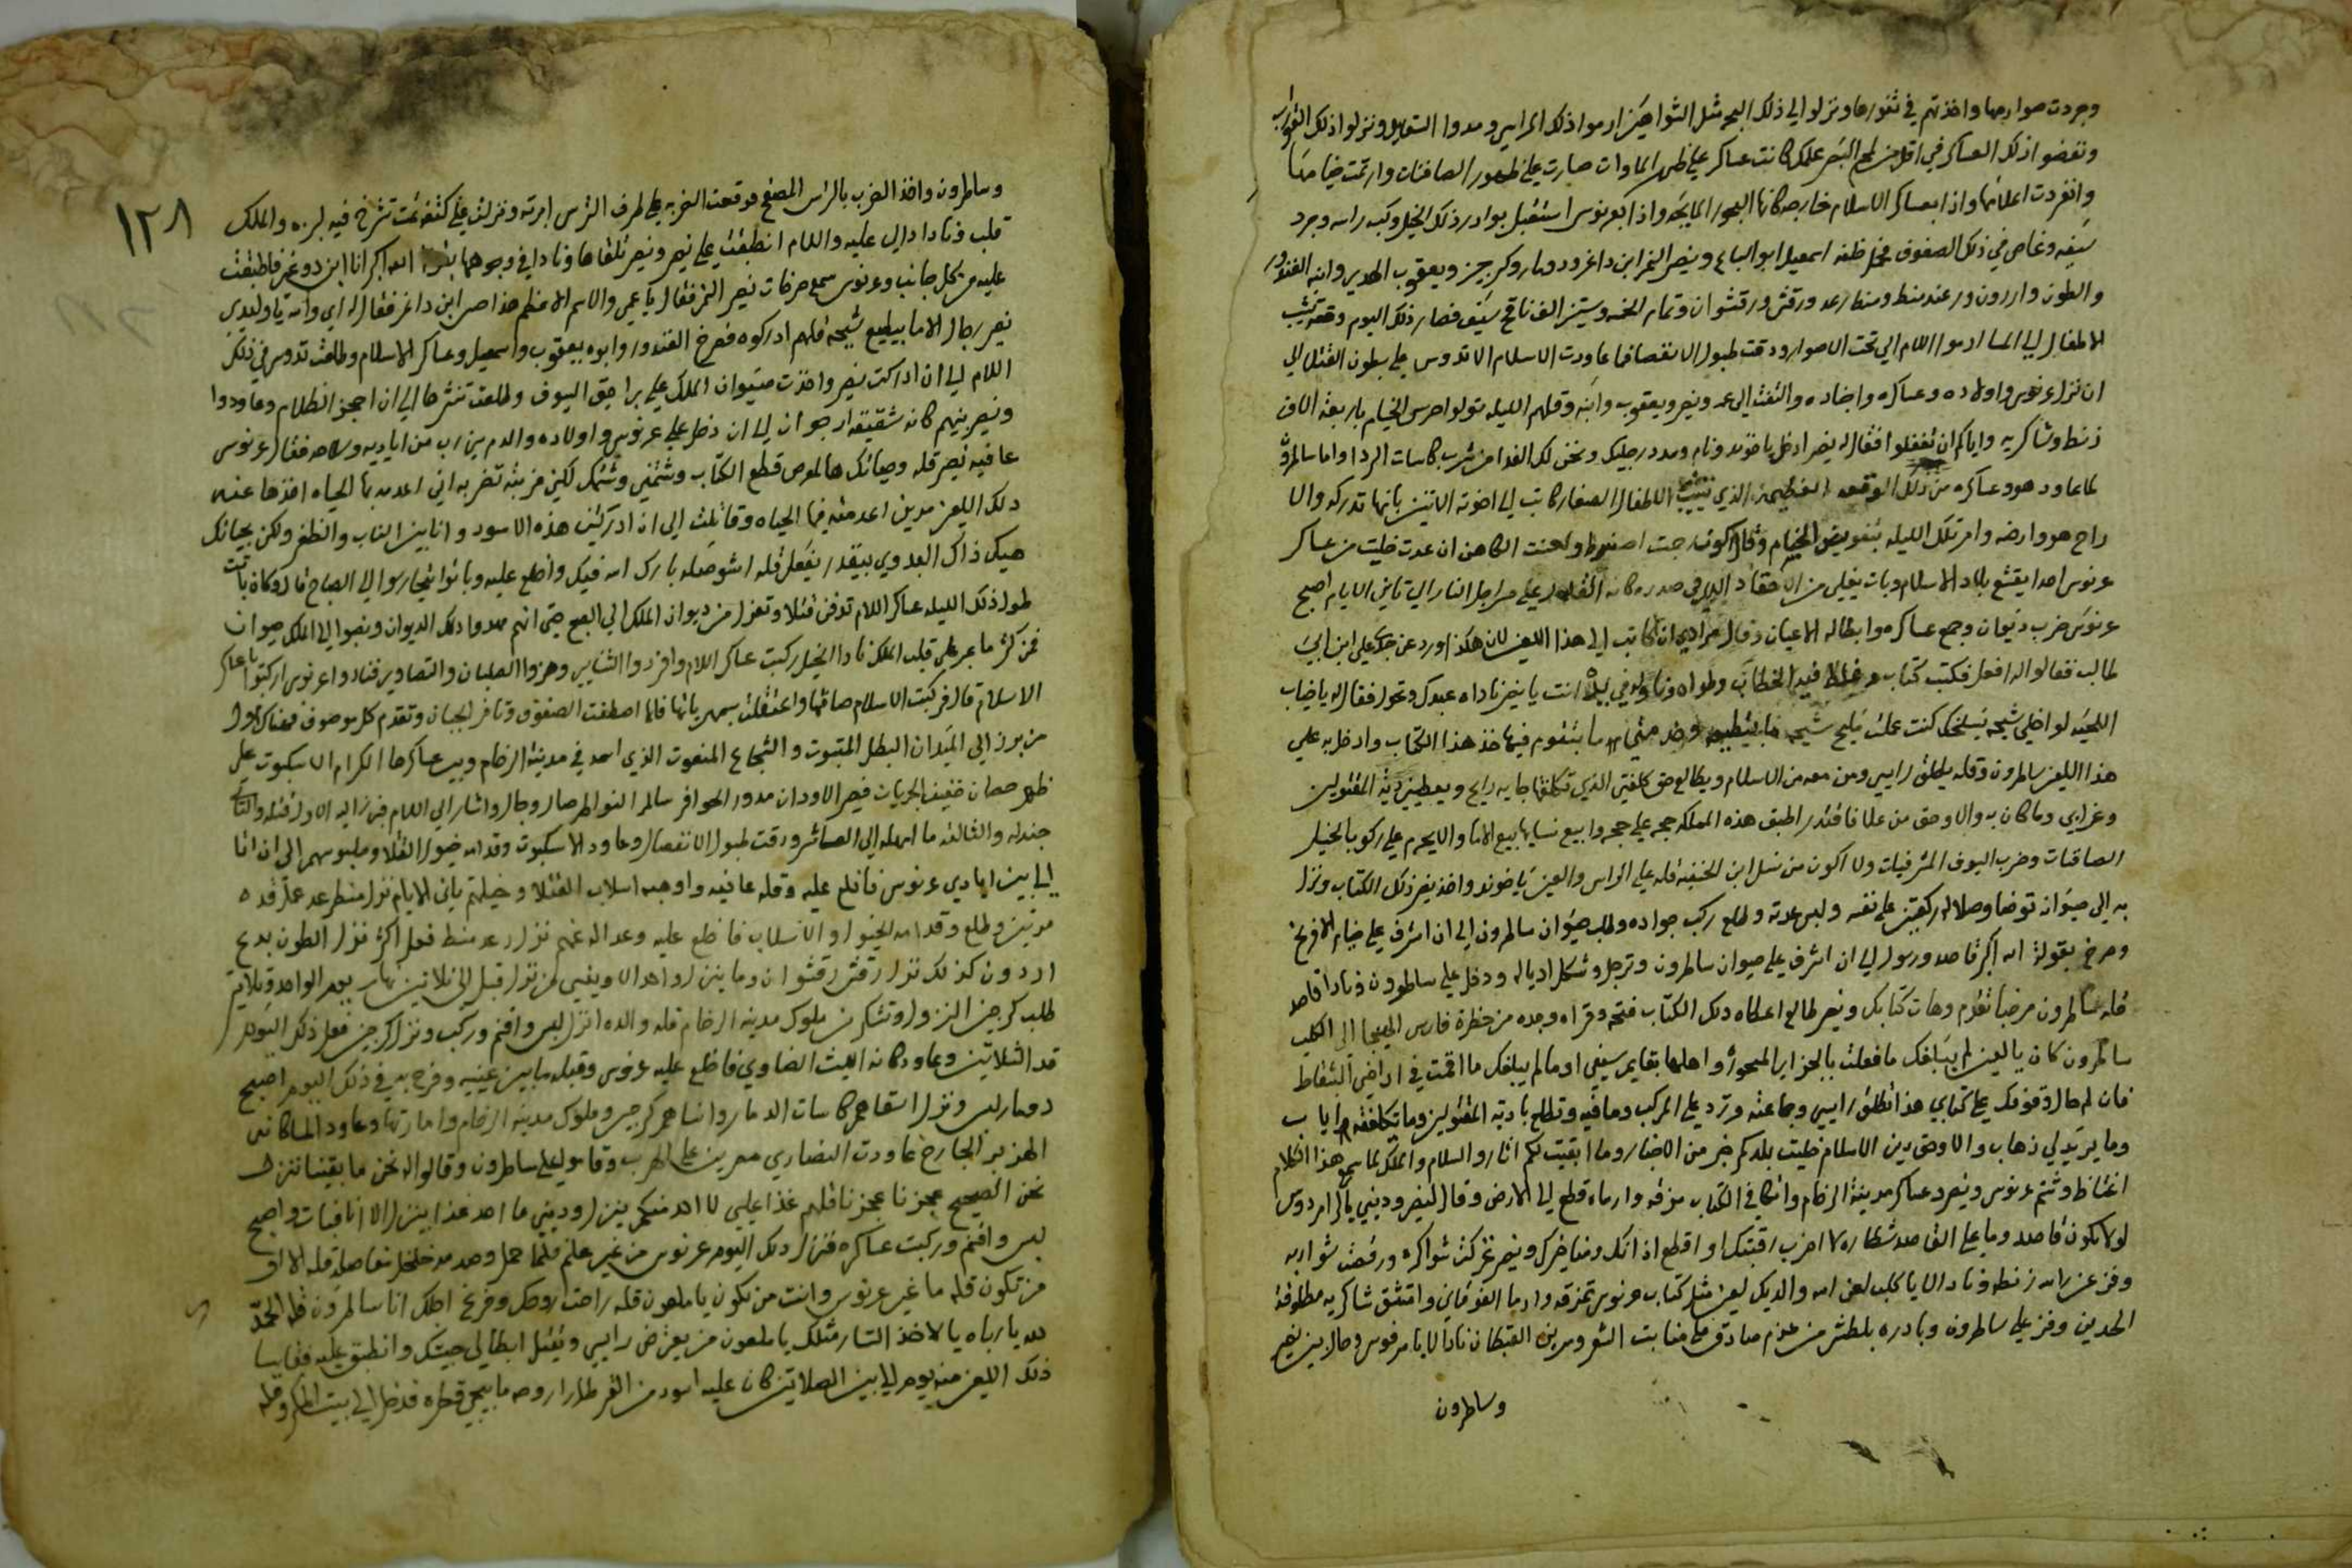 وجردت صوارمها واخذتهم في ثغورها ونزلوا الي ذلك البحر مثل الشواهين ارموا ذلك المراسي ومدوا السقايل ونزلوا ذلك
ونفضوا ذلك العساكر في اقل من لمح البصر علك كانت عساكر علي ظهر الماوات صارت علي ظهور الصافنات وارتمت خيامها
وانفردت اعلامها واذا بعساكر الاسلام خارجه كانها البحور المايجه واذا بعرنوس استقبل بوادر ذلك الخيل وكب راسه وجرد
سيفه وغاص في ذلك الصفوف فحمل خلفه اسمعيل ابو السباع ونصير النمر ابن داغر ودومار وكرجز ويعقوب الهدير وابنه الغندور
والطون واردون ورعد منط ومنطارعد ورقش ورقشوان وتمام الخمسه وستين الف ناقع سيف فصار ذلك اليوم وقعه تشيب
الاطفال الي المسا ارموا اللام الي تحت الاصوار ودقت طبول الانفصال فما عاودت الاسلام الا تدوس علي بطون القتلا الي
ان نزل عرنوس واولاده وعساكره واجناده والتفت الي عمه ونصير ويعقوب وابنه وقلهم الليله تولوا حرس الخيام باربعة الاف
زنط وشاكريه واياكم ان تغفلوا فقال له نصير ادخل ياخوند ونام ومدد رجليك ونحن لك الفدا من شرب كاسات الردا واما ساطرون
لما عاود هو وعساكره من ذلك الوقعه العظيمه الذي تشيب الاطفال الصغار كاتب الي اخوته الاتنين بانها تدركه والا
راح هو وارضه وامر تلك الليله بتفويض الخيام وقال اكون رجت اصغر ولعنت الكاهن ان عدت خليت من عساكر
عرنوس احدا يقشع بلاد الاسلام وبات يغلي من الاحقاد الذي في صدره كانه القدر علي مراجل النار الي تاني الايام اصبح
عرنوس ضرب ديوان وجمع عساكره وابطاله الاعيان وقال مرادي ان اكاتب الي هذا اللعين لان هكذا ورد عن جدك علي ابن ابي
طالب فقالوا له افعل فكتب كتاب وغلظ فيه الخطاب وطواه وناوله في يده انت يا نصير ناداه عبدك وتحول فقال له يا ضياب
اللحيه لو اخلي شيحه يسلخك كنت عملت مليح شيحه ما بينطيب وضد مني ما بتقوم فيها خذ هذا الكتاب وادخل به علي
هذا اللعين ساطرون وقله يطلق راسي ومن معه من الاسلام ويطالع حق كلفتي الذي تكلفتها جايه رايح ويعطيني دية المقتولين
وغرامي وما كان به والا وحق من علا فاقتدر اطبق هذه المملكه حجر علي حجر وابيع نسايها بيع الاما والا يحرم علي ركوب الخيل
الصافنات وضرب السيوف المشرفيات ولا اكون من نسل ابن الحنفيه قله علي الراس والعين يا خوند واخذ نصير ذلك الكتاب ونزل
به الي صيوانه توضا وصلا له ركعتين علي نفسه ولبس عدته وطلع ركب جواده وطلب صيوان ساطرون الي ان اشرف علي خيام الافرنج
وصرخ بقولة الله اكبر قاصد ورسول الي ان اشرف علي صيوان ساطرون وترجل وشكل اديال ودخل علي ساطرون ونادا قاصد
قله ساطرون مرحبا تقدم وهات كتابك ونصير طالع اعطاه ذلك الكتاب فتحه وقراه وجده من حضرة فارس الهيجا الي الكلب
ساطرون كان يا لعين لم يبلغك ما فعلت بالجزاير المسحوره واهلها بقايم سيفي اوما لم يبلغك ما اقمت في اراضي الشقاط
فان لم حال وقوفك علي كتابي هذا تطلق راسي وجماعته وترد علي المركب وما فيه وتطلع بادية المقتولين وما تكلفته رايب
وما يريد لي ذهاب والا وحق دين الاسلام خليت بلدكم خبر من الاخبار وما ابقيت لكم اثار والسلام والملك لما سمع هذا الكلام
اغتاظ وشتم عرنوس ونصير وعساكر مدينة الرخام واتكا في الكتاب مزقه وارماه قطع الي الارض وقال لنصير وديني
لولا تكون قاصد وما علي القاصد شطاره لا اضرب رقبتك او اقطع اذانك ومناخيرك ونصير تحركت شواكره ورقصت شواربه
وفز عن راسه زنطه ونادا لا يا كلب لعن الله والديك لعين مثل كتاب عرنوس تمزقه وارما الفوقاني وامتشق شاكريه مطلوقة
الحدين وفز علي ساطرون وبادره بلطش من عزم صادق علي منابت الشعر ومرين القبطان نادا لا يا مرفوس وحال بين نصير
وساطرون
١٢٨
وساطرون واخذ الضرب بالترس المصفح فوقعت الضربه علي طرف الترس ابرته ونزلت علي كتفه تمت تشرخ فيه لبزه والملك
قلب ونادا دالي عليه واللام انطبقت علي نصير ونصير تلقاها ونادا في وجوهها الله اكبر انا ابن دوغر فاطبقت
عليه من كل جانب وعرنوس سمع صرخات نصير النمر فقال يا عمي والاسم الاعظم هذا حس ابن داغر فقال له اي والله يا ولدي
نصير رجال الاما بيطيع شيحه قلهم ادركوه فصرخ الغندور وابوه يعقوب واسمعيل وعساكر الاسلام وطلعت تدوس في ذلك
اللام الي ان ادركت نصير واخذت صيوان الملك علي براحيق السيوف وطلعت تنثرها الي ان احجز الظلام وعاودوا
ونصير بينهم كانه شقيقة ارجوان الي ان دخل علي عرنوس واولاده والدم ينسرب من اياديه وسلاحه فقال عرنوس
عافيه نصير قله وحياتك هالمعرص قطع الكتاب وشتمني وشتمك لكني ضربته تضربه اني اعدمه بها الحياه اخذها عنه
ذلك اللعين مرين اعدمته فيها الحياه وقاتلت الي ان ادركتني هذه الاسود وانا بين الناب والظفر ولكن بحياتك
هيك ذاك البدوي بيقدر يفعل قله اش وصله بارك الله فيك واخلع عليه وباتوا يتحارسوا الي الصباح قال وكان باتت
طول ذلك الليله عساكر اللام تدفن قتلا وتعزل من ديوان الملك الي الصبح حتي انهم مهدوا ذلك الديوان ونصبوا الي الملك صيوان
فمن كثر ما عبر علي قلب الملك نادا الخيل ركبت عساكر اللام وافردوا الشنانير وهزوا الصلبان والتصاوير فنادوا عرنوس اركبوا يا عساكر
الاسلام قال فركبت الاسلام صافناتها واعتقلت بسمهرياتها فلما اصطفت الصفوف وتنافر الجبان وتقدم كل موصوف فكان اول
من برز الي الميدان البطل المثبوت والشجاع المنعوت الذي اسمه في مدينة الرخام وبين عساكرها الكرام الاسكبوت علي
ظهر حصان خفيف الجريات قصير الاودان مدور الحوافر سالم النواظر صال وجال واشار الي اللام فنزل اليه الاول قتله والتاني
جندله والثالث ما امهله الي العصاير ودقت طبول الانفصال وعاود الاسكبوت وقدامه خيول القتلا وملبوسهم الي ان اتا
الي بين ايادي عرنوس فاخلع عليه وقله عافيه واوهبه اسلاب القتلا وخيلهم تاني الايام نزل منطرعد عمل قده
مرتين وطلع وقدامه الخيول والاسلاب فاخلع عليه وعداله عنهم نزل رعد منط فعل اكثر نزل الطون بدع
اردون كذلك نزل رقش رقشوان وما ينزل واحد الا ويفني من نزل قبل الي تلاتين نهار بعد الواحد وتلاتين
طلب كرجز النزول وتشكر من ملوك مدينة الرخام قله والده انزل لبس وافخم وركب ونزل كرجز فعل ذلك اليوم
قد التلاتين وعاود كانه الليث الضاوي فاخلع عليه عرنوس وقبله ما بين عينيه وفرح به في ذلك اليوم اصبح
دومار لبس ونزل اسقاهم كاسات الدمار وانساهم كرجز وملوك مدينة الرخام وامارتها وعاود المسا كانه
الهزبر الجارح عاودت النصارى معرين علي الهرب وقاموا علي ساطرون وقالوا له نحن ما بقينا ننزل
نحن الصحيح عجزنا عجزنا قلهم غذا علي لا احد منكم ينزل وديني ما احد غذا بينزل الا انا فبات واصبح
لبس وافخم وركبت عساكره فنزل ذلك اليوم عرنوس من غير علم فلما حمل وصدمه خلخل مفاصله قله الاول
من تكون قله ما غير عرنوس وانت من تكون يا ملعون قله راحت روحك وفرغ اجلك انا ساطرون قله الحمد
لله يا رباه يا لاخذ التار مثلك يا ملعون من يعترض راسي ويقتل ابطالي جيتك وانطبق عليه فقاسا
ذلك اللعين منه يوم الي بين الصلاتين كان عليه اسود من القطران اروحه ما بيجي قطره فدخل الي بيت الملك وقله